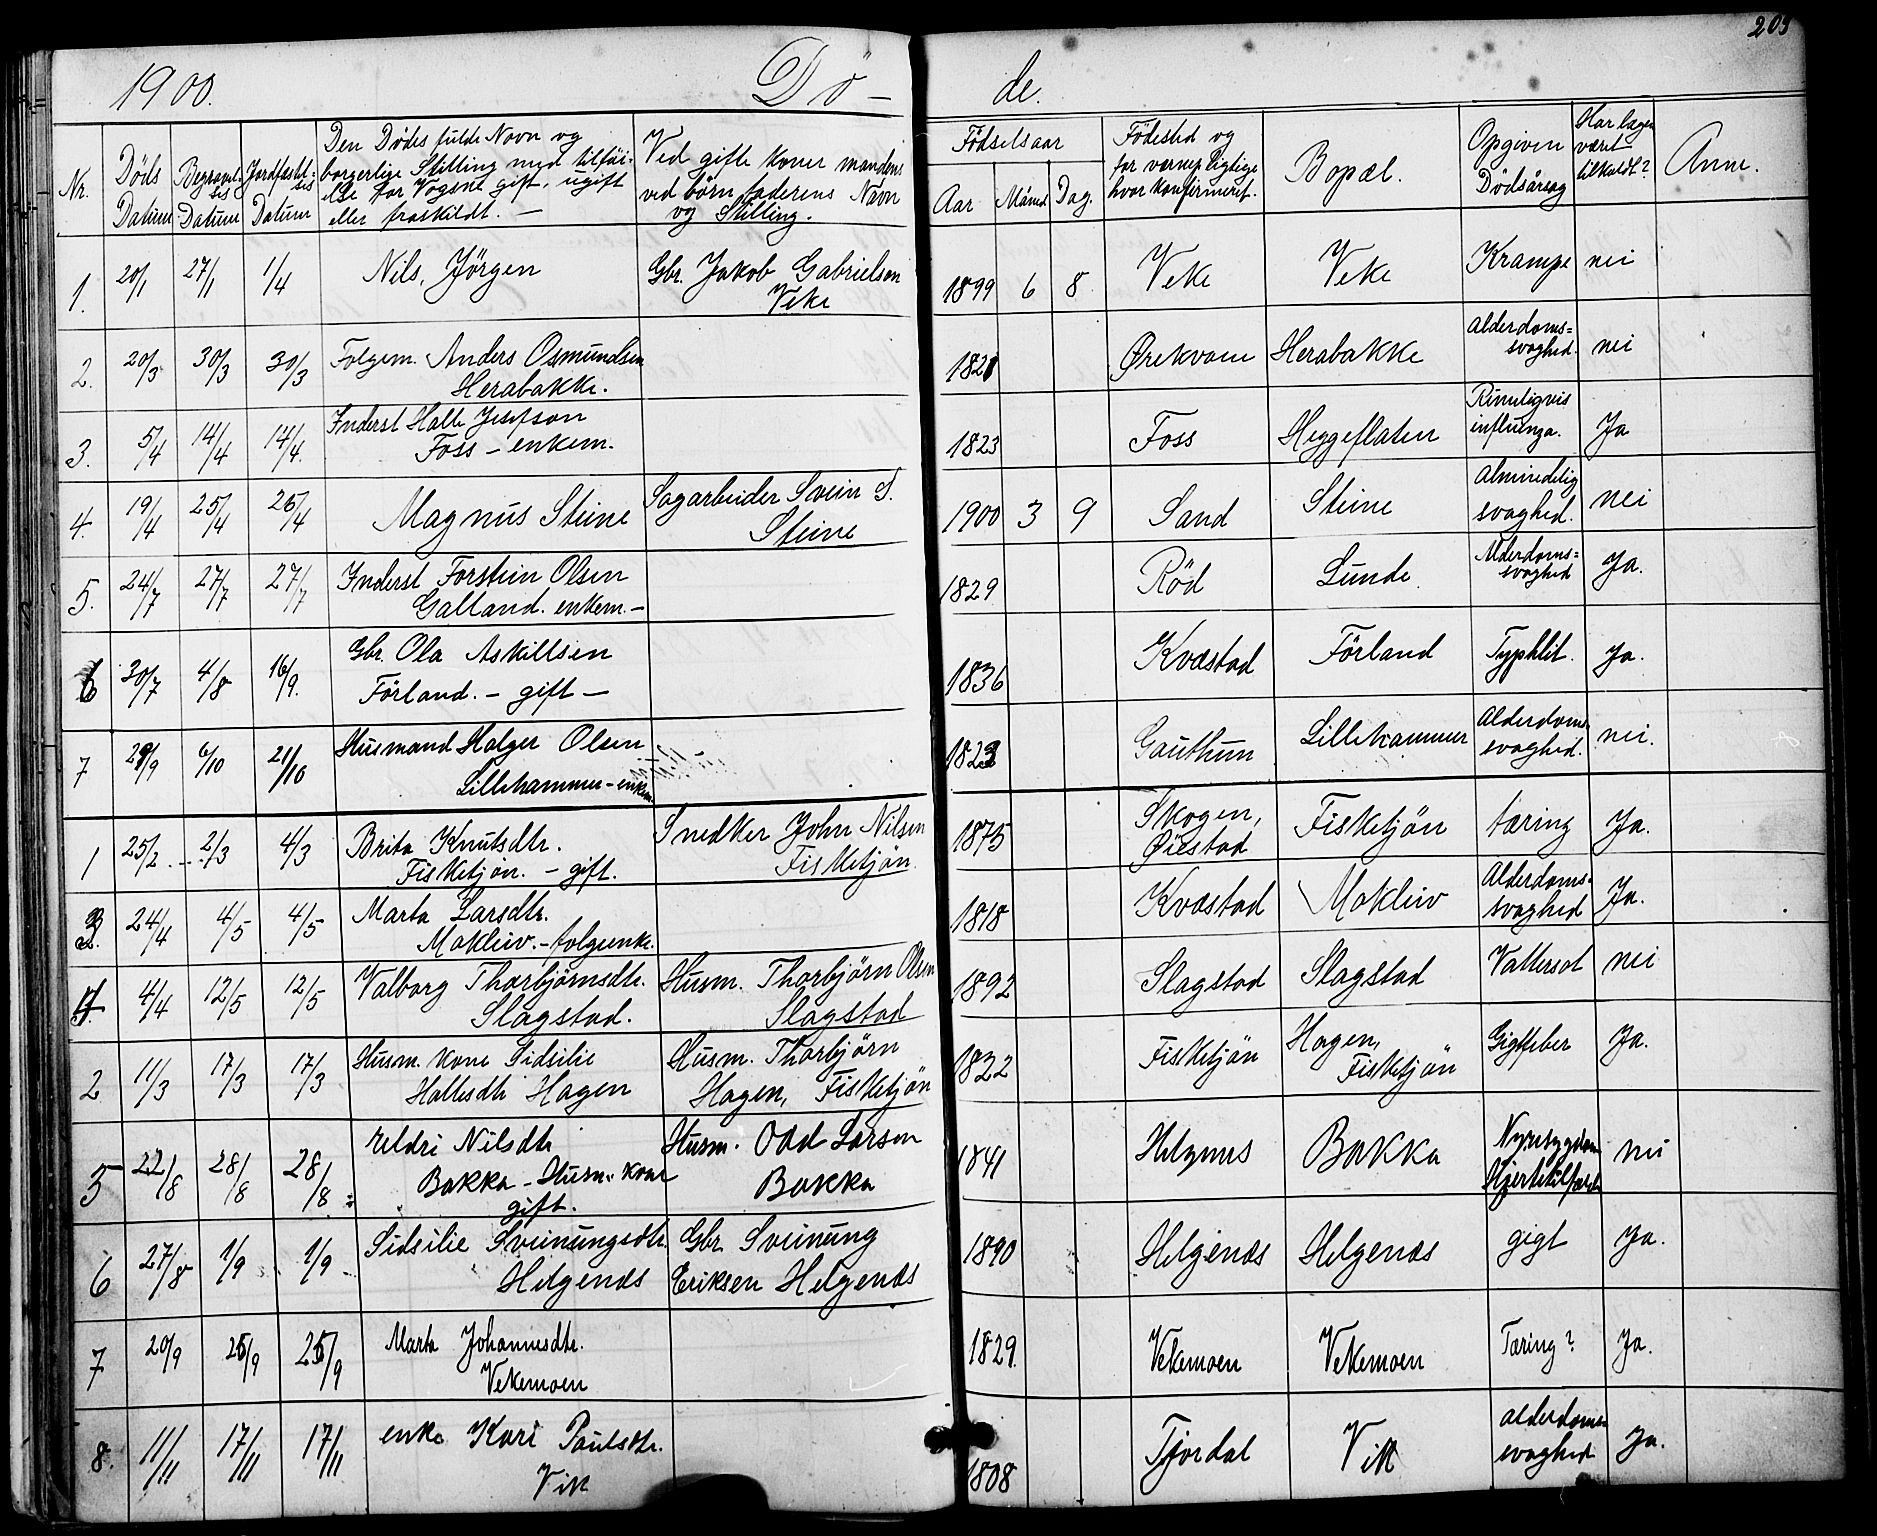 203
1900. Dö- de.
Nr.
Döds Datum
Begravelsis Datum
Jordfæstelsis Datum
Den Dødes fulde Navn og
borgerlige Stilling med tilföi-
else for Vogsne gift, ugift
eller fraskildt. —
Ved gifte koner mandens
ved börn faderens Navn
og Stilling.
Födselsaar
Aar Måned Dag.
Födested og
for værnepligtige
hvor konfirmeret.
Bopæl.
Opgiven
Dödsårsag
Har lægen
været
tilkaldt?
Anm.
1. 20/1 27/1 1/4 Nils, Jörgen Gbr. Jakob Gabrielsen 1899 6 8 Veke Veke Krampe nei
Veke
2. 20/3 30/3 30/3 Folgem. Anders Osmundsen 1821 Ørekvam Herabakke Alderdoms= nei
Herabakke. svaghed.
3. 5/4 14/4 14/4. Inderst Halle Josefson 1823 Foss Heggeflaten Rimeligvis Ja
Foss - enkem. influenza.
4. 19/4 25/4 26/4 Magnus Steine Sagarbeider Svein S. 1900 3 9 Sand Steine Almindelig nei
Steine svaghed.
5. 24/7 27/7 27/7 Inderst Torstein Olsen 1829 Röd Lunde Alderdoms= Ja.
Galland. enkem. - svaghed
6 30/7 4/8 16/9. Gbr. Ola Askillsen 1836 Kvæstad Förland Typhlit. Ja.
Förland. - gift -
7 29/9 6/10 21/10 Husmand Holger Olsen 1823 Gauthun Lillehammer Alderdoms- nei.
Lillehammer - enkem svaghed.
1 25/2. 2/3 4/3 Brita Knutsdtr. Snedker John Nilsen 1875 Skogen, Fisketjön tæring Ja.
Fisketjön. - gift. Fisketjön. Øiestad
3. 24/4 4/5 4/5 Marta Larsdtr. 1818 Kvæstad Mokleiv Alderdoms- Ja.
Mokleiv. - folgeenke. svaghed
4. 4/4 12/5 12/5 Valborg Thorbjörnsdtr. Husm. Thorbjörn Olsen 1892 Slagstad Slagstad Vattersot nei
Slagstad. Slagstad
2 11/3 17/3 17/3 Husm. kone Sidsilie Husm. Thorbjörn 1822 Fisketjön Hagen, Gigtfeber Ja.
Hallesdtr Hagen Hagen, Fisketjön Fisketjön
5 22/8 28/8 28/8 Eldri Nilsdtr Husm. Odd Larsen 1841 Helgenes Bakka Nyresygdom nei
Bakka - Husm. kone Bakka Hjertetilfælde
gift.
6 27/8 1/9 1/9 Sidsilie Sveinungsdtr. Gbr. Sveinung 1890 Helgenæs Helgenæs gigt Ja.
Helgenæs Eriksen Helgenæs
7 20/9 25/9 25/9 Marta Johannesdtr. 1829. Vekemoen Vekemoen Tæring? Ja.
Vekemoen
8. 11/11 17/11 17/11 enke Kari Paulsdtr. 1808 Tjordal Vik alderdoms- Ja.
Vik svaghed